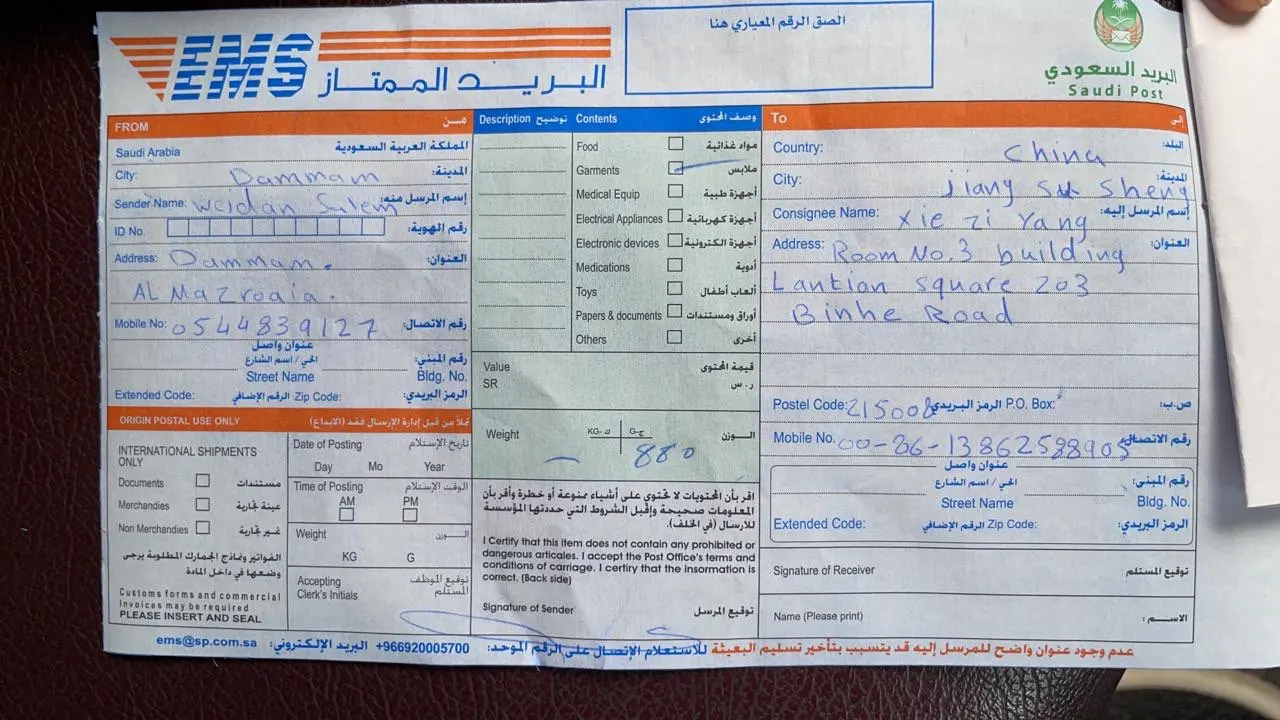 EMS
البريد الممتاز
الصق الرقم المعياري هنا
البريد السعودي
Saudi Post
FROM من
Saudi Arabia المملكة العربية السعودية
City: Dammam المدينة:
Sender Name: Weidan Salem إسم المرسل منه:
ID No. رقم الهوية:
Address: Dammam. العنوان:
AL Mazroaia.
Mobile No: 0544839127 رقم الاتصال:
عنوان واصل
الحي / اسم الشارع رقم المبنى:
Street Name Bldg. No.
Extended Code: الرقم الإضافي Zip Code: الرمز البريدي:
ORIGIN POSTAL USE ONLY تملأ من قبل إدارة الإرسال فقد (الابداع)
INTERNATIONAL SHIPMENTS
ONLY
Documents مستندات
Merchandies عينة تجارية
Non Merchandies غير تجارية
الفواتير ونماذج الجمارك المطلوبة يرجى
وضعها في داخل المادة
Customs forms and commercial
Invoices may be required
PLEASE INSERT AND SEAL
Date of Posting تاريخ الإستلام
Day Mo Year
Time of Posting الوقت الإستلام
AM PM
Weight الوزن
KG G
Accepting توقيع الموظف
Clerk's Initials المستلم
Description توضيح Contents وصف المحتوى
Food مواد غذائية
Garments ملابس
Medical Equip أجهزة طبية
Electrical Appliances أجهزة كهربائية
Electronic devices أجهزة الكترونية
Medications أدوية
Toys ألعاب أطفال
Papers & documents أوراق ومستندات
Others أخرى
Value قيمة المحتوى
SR ر.س
Weight KG-ك G-ج الوزن
880
اقر بأن المحتويات لا تحتوي على أشياء ممنوعة أو خطرة وأقر بأن
المعلومات صحيحة وإقبل الشروط التي حددتها المؤسسة
للارسال (في الخلف).
I Certify that this item does not contain any prohibited or
dangerous articales. I accept the Post Office's terms and
conditions of carriage. I certify that the insormation is
correct. (Back side)
Signature of Sender توقيع المرسل
To إلى
Country: China البلد:
City: Jiang su sheng المدينة:
Consignee Name: Xie zi Yang إسم المرسل إليه:
Address: Room No.3 building العنوان:
Lantian square 203
Binhe Road
Postel Code: 215008 الرمز البريدي P.O. Box: ص.ب:
Mobile No. 00-86-13862588905 رقم الاتصال:
عنوان واصل
الحي / اسم الشارع رقم المبنى:
Street Name Bldg. No.
Extended Code: الرقم الإضافي Zip Code: الرمز البريدي:
Signature of Receiver توقيع المستلم
Name (Please print) الاسم:
ems@sp.com.sa البريد الإلكتروني: +966920005700 للأستعلام الإتصال على الرقم الموحد: عدم وجود عنوان واضح للمرسل إليه قد يتسبب بتأخير تسليم البعيثة